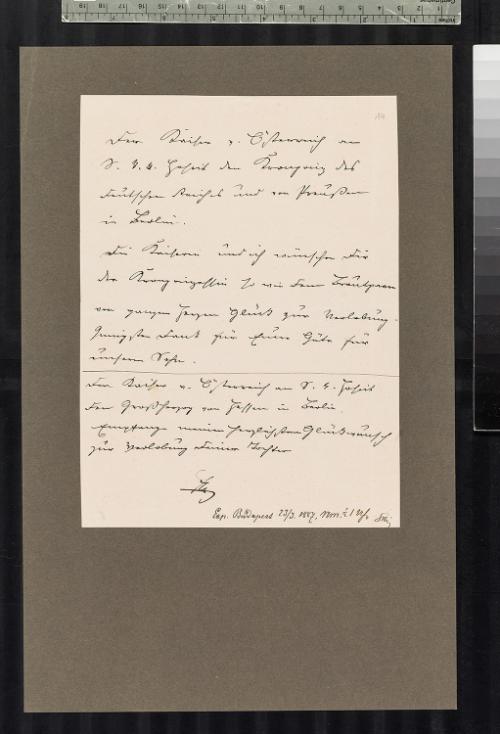 Der Kaiser v. Österreich an
S. k. k. Hoheit den Kronprinz des
deutschen Reiches und von Preußen
in Berlin.
Die Kaiserin und ich wünschen Dir
der Kronprinzessin so wie dem Brautpaar
von ganzem Herzen Glück zur Verlobung.
Innigsten Dank für Eure Güte für
unseren Sohn.
Der Kaiser v. Österreich an S. k. Hoheit
den Großherzog von Hessen in Berlin.
Empfange meinen herzlichsten Glückwunsch
zur Verlobung Deiner Tochter
Exp. Budapest 23/3. 1887.